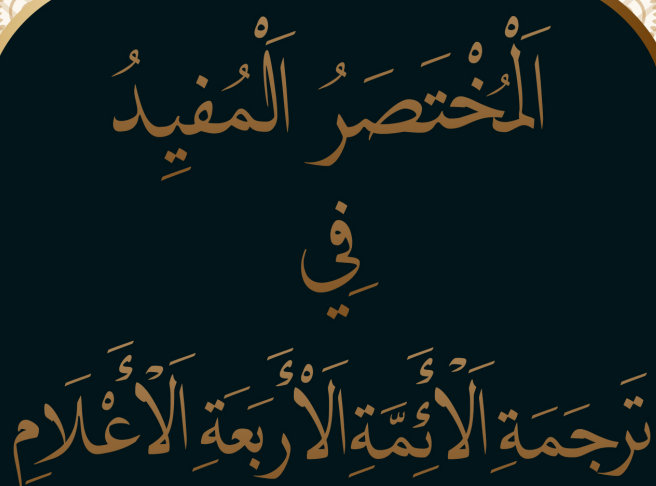 الْمُخْتَصَرُ الْمُفِيدُ
فِي
تَرْجَمَةِ الْأَئِمَّةِ الْأَرْبَعَةِ الْأَعْلَامِ